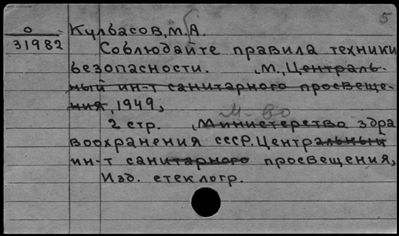 5
О
31982
Кулбасов, М.А.
Соблюдайте правила техники
безопасности. М., Централь-
ный ин-т санитарного просвеще-
ния, 1949,
М-во
2 стр. Министерство здра
воохранения СССР. Центральный
ин-т санитарного просвещения,
Изд. стеклогр.